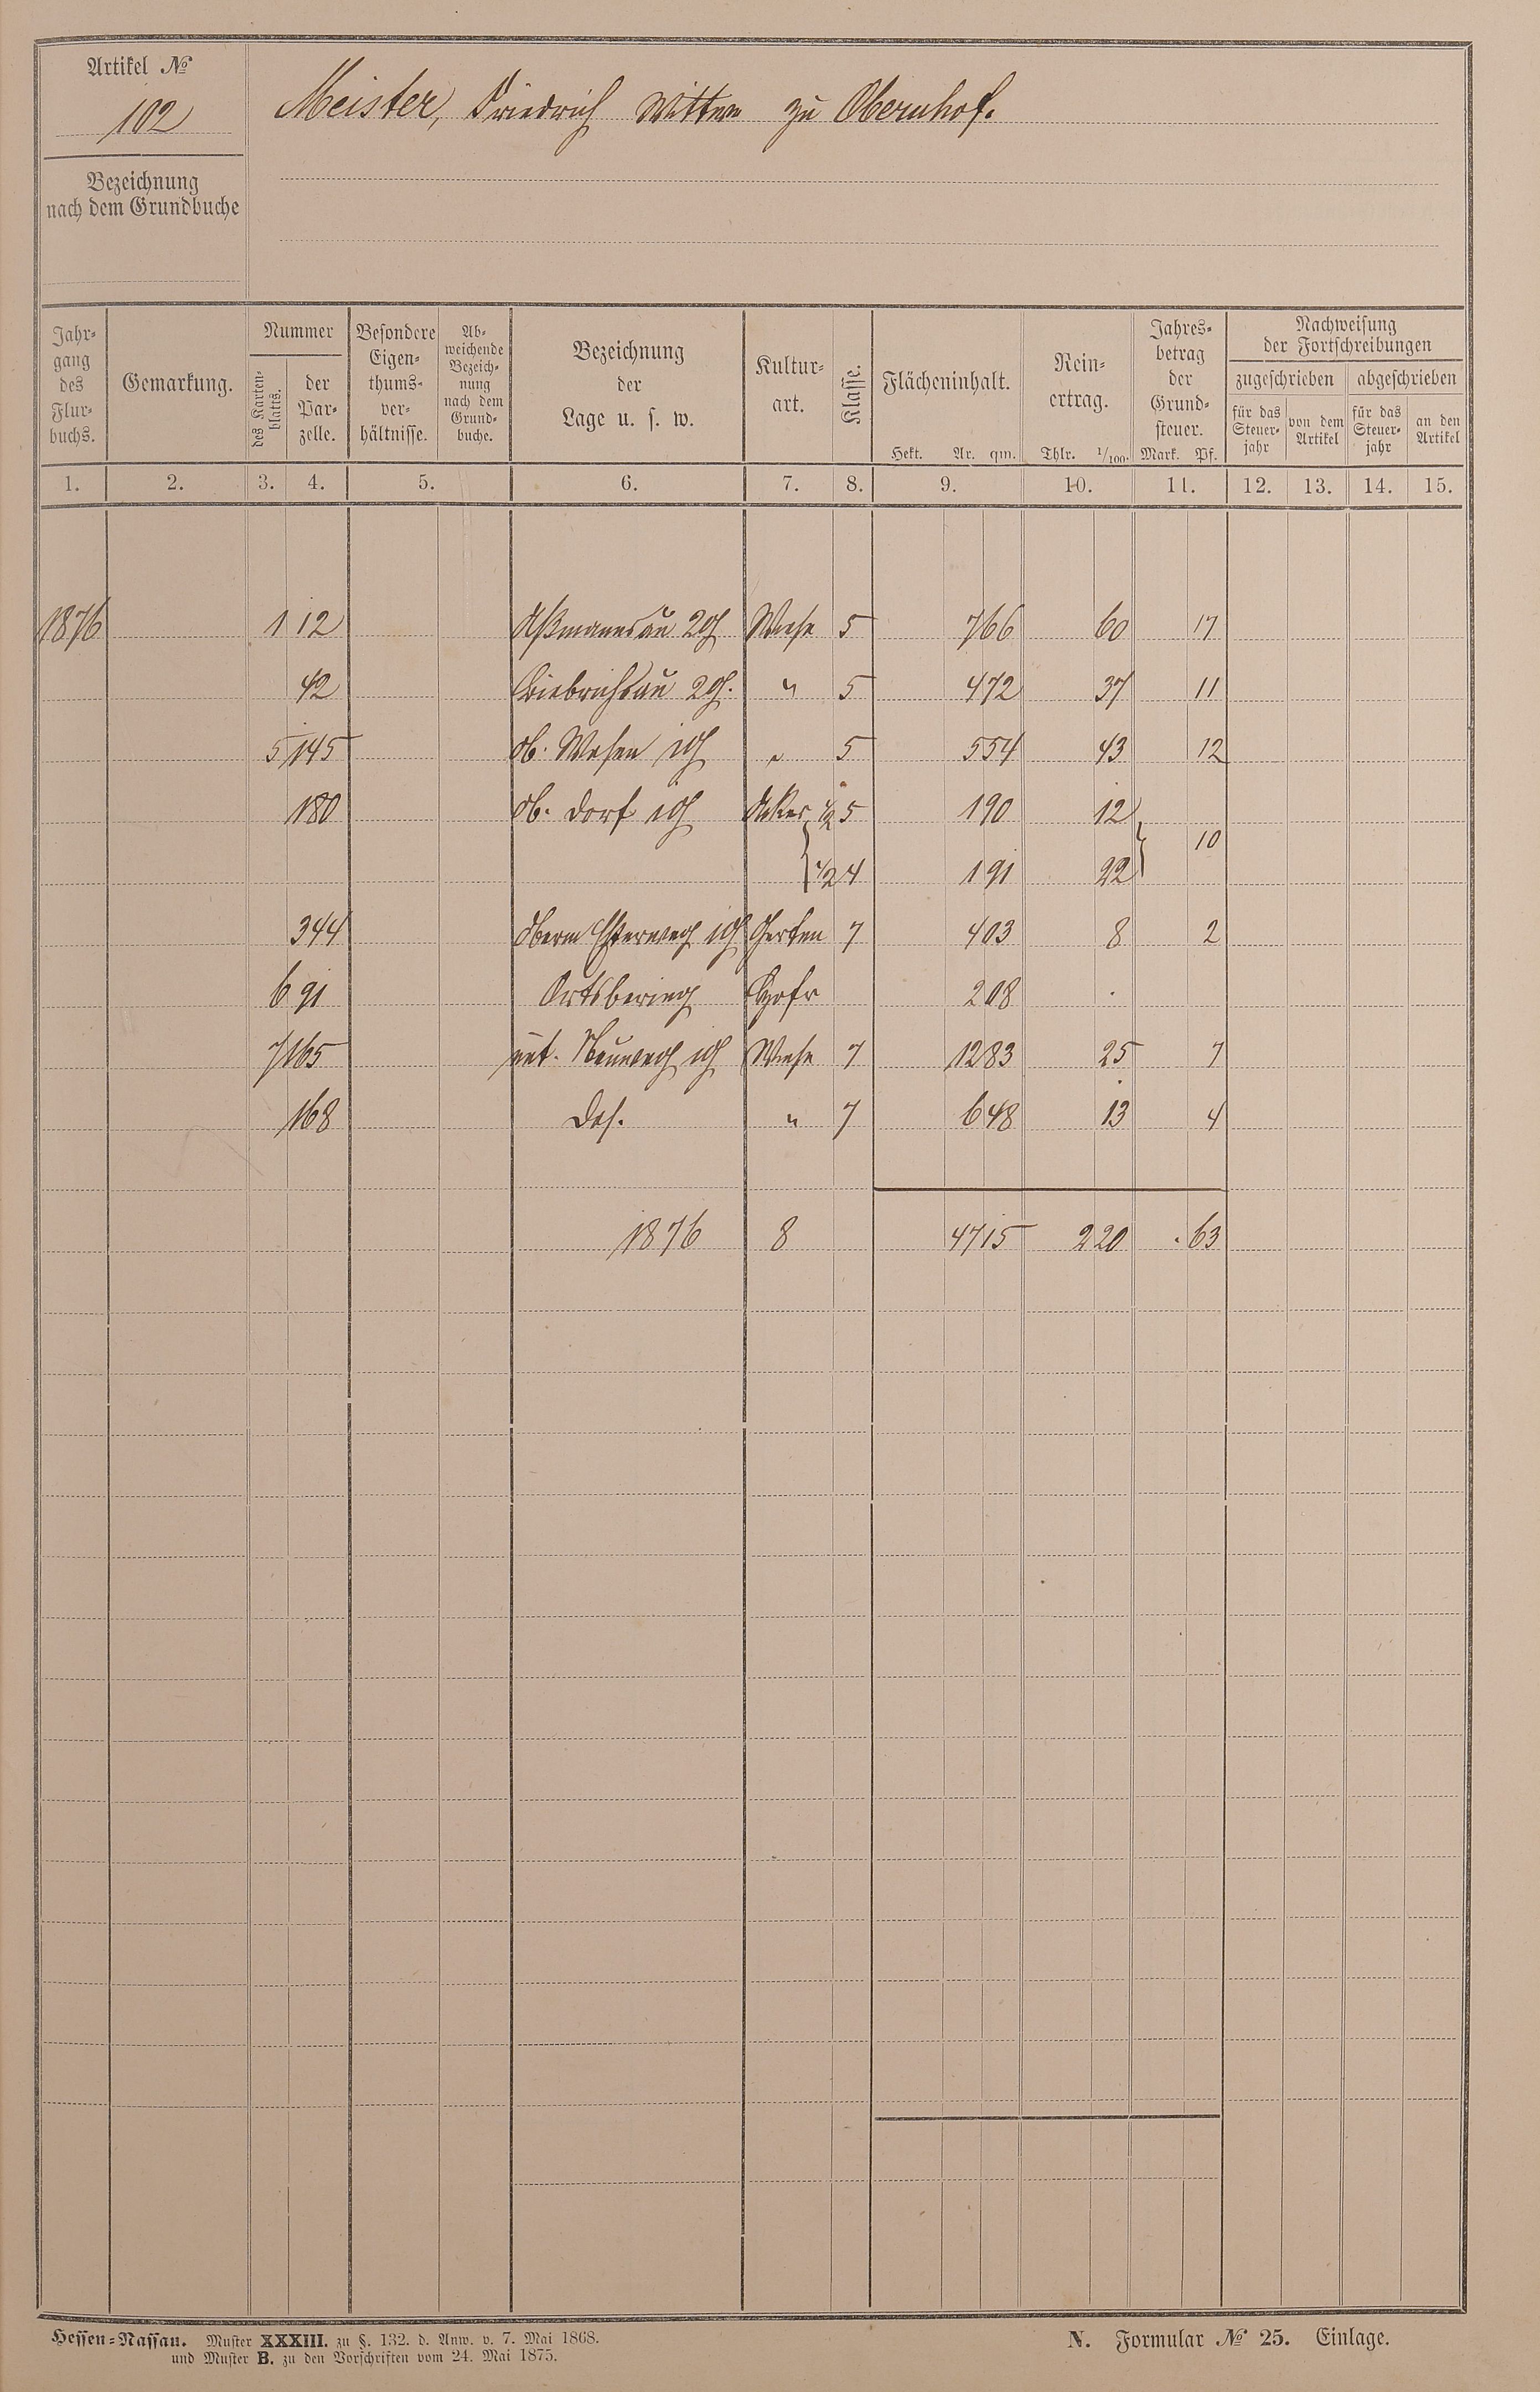 Artikel № 102
Meister, Friedrich Wittwe zu Obernhof.
Bezeichnung
nach dem Grundbuche
Jahr-
gang
des
Flur-
buchs.
Gemarkung.
Nummer
des Karten-
blatts.
der
Par-
zelle.
Besondere
Eigen-
thums-
ver-
hältnisse.
Ab-
weichende
Bezeich-
nung
nach dem
Grund-
buche.
Bezeichnung
der
Lage u. s. w.
Kultur-
art.
Klasse.
Flächeninhalt.
Hekt. Ar. qm.
Rein-
ertrag.
Thlr. 1/100.
Jahres-
betrag
der
Grund-
steuer.
Mark. Pf.
Nachweisung
der Fortschreibungen
zugeschrieben abgeschrieben
für das
Steuer-
jahr
von dem
Artikel
für das
Steuer-
jahr
an den
Artikel
1. 2. 3. 4. 5. 6. 7. 8. 9. 10. 11. 12. 13. 14. 15.
1876 1 12 Aßmannsau 2 Wiese 5 7 66 60 17
42 2 " 5 4 72 37 11
5 145 ob. Wiesen " 5 5 54 43 12
180 ob. Dorf Acker 1/2 5 1 90 12
10
1/2 4 1 91 22
344 Oberm 7 4 03 8 2
6 91 Ortsbering Hofr 2 08 .
7 165 unt. Neuweg Wiese 7 12 83 25 7
168 Das. " 7 6 48 13 4
1876 8 47 15 2 20 . 63
Hessen-Nassau. Muster XXXIII. zu §. 132. d. Anw. v. 7. Mai 1868.
und Muster B. zu den Vorschriften vom 24. Mai 1875.
N. Formular № 25. Einlage.